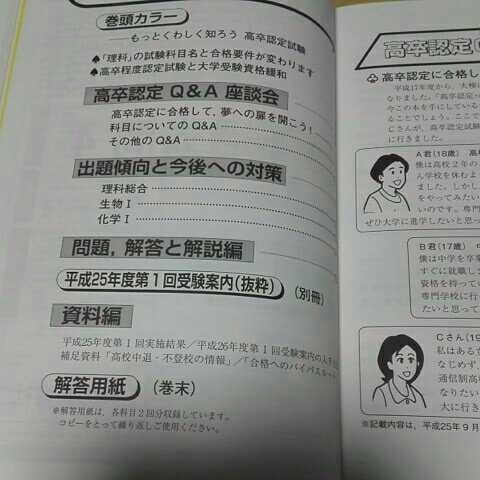 巻頭カラー
もっとくわしく知ろう 高卒認定試験
♠「理科」の試験科目名と合格要件が変わります
♠高卒程度認定試験と大学受験資格緩和
高卒認定 Q&A 座談会
高卒認定に合格して,夢への扉を開こう!
科目についてのQ&A
その他のQ&A
出題傾向と今後への対策
理科総合
生物Ⅰ
化学Ⅰ
問題,解答と解説編
平成25年度第1回受験案内(抜粋) (別冊)
資料編
平成25年度第1回実施結果/平成26年度第1回受験案内の入手
補足資料「高校中退・不登校の情報」/「合格へのバイパスルー
解答用紙 (巻末)
※解答用紙は,各科目2回分収録しています。
コピーをとって繰り返しご使用ください。
高卒認定
♣ 高卒認定に合格し
平成17年度から,大検
なりました。「高卒認定
今この本を手にしている
ることでしょう。ここで
Cさんが,高卒認定試験
に行きました。
A君(18歳) 高
僕は高校2年の
ん学校を休むよ
ました。しかし
をやってみたい
いのです。専門
ぜひ大学に進学したいと思っ
B君(17歳) 中
僕は中学を卒業
すぐに就職し
資格を持って
専門学校に行
たいと思って
Cさん(19
私はある
なじめず,
通信制高
なりたい
大に行き
※記載内容は,平成25年9月